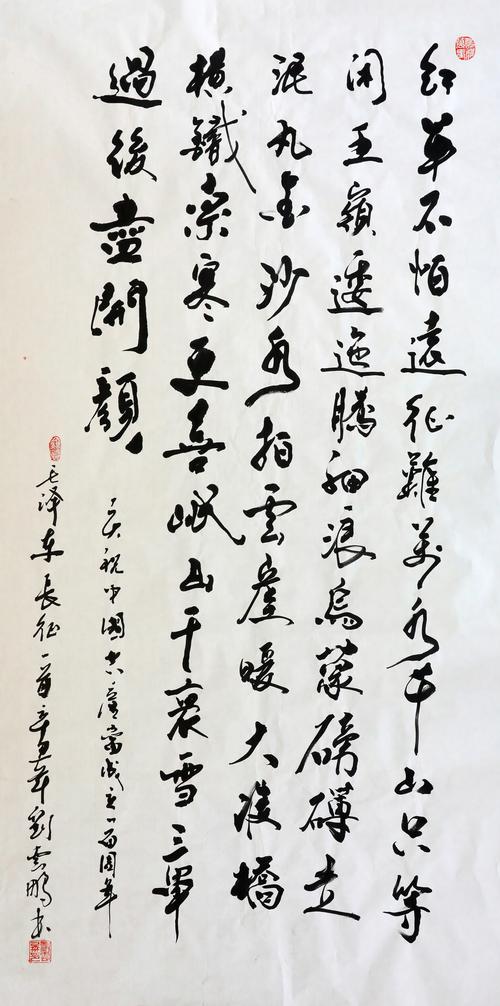 红军不怕遠征難萬水千山只等
閑五嶺逶迤騰細浪烏蒙磅礴走
泥丸金沙水拍雲崖暖大渡橋
横鐵索寒更喜岷山千裏雪三軍
過後盡開顏
庆祝中國共産黨成立一百周年
毛泽东長征一首辛丑年劉雲鵬书